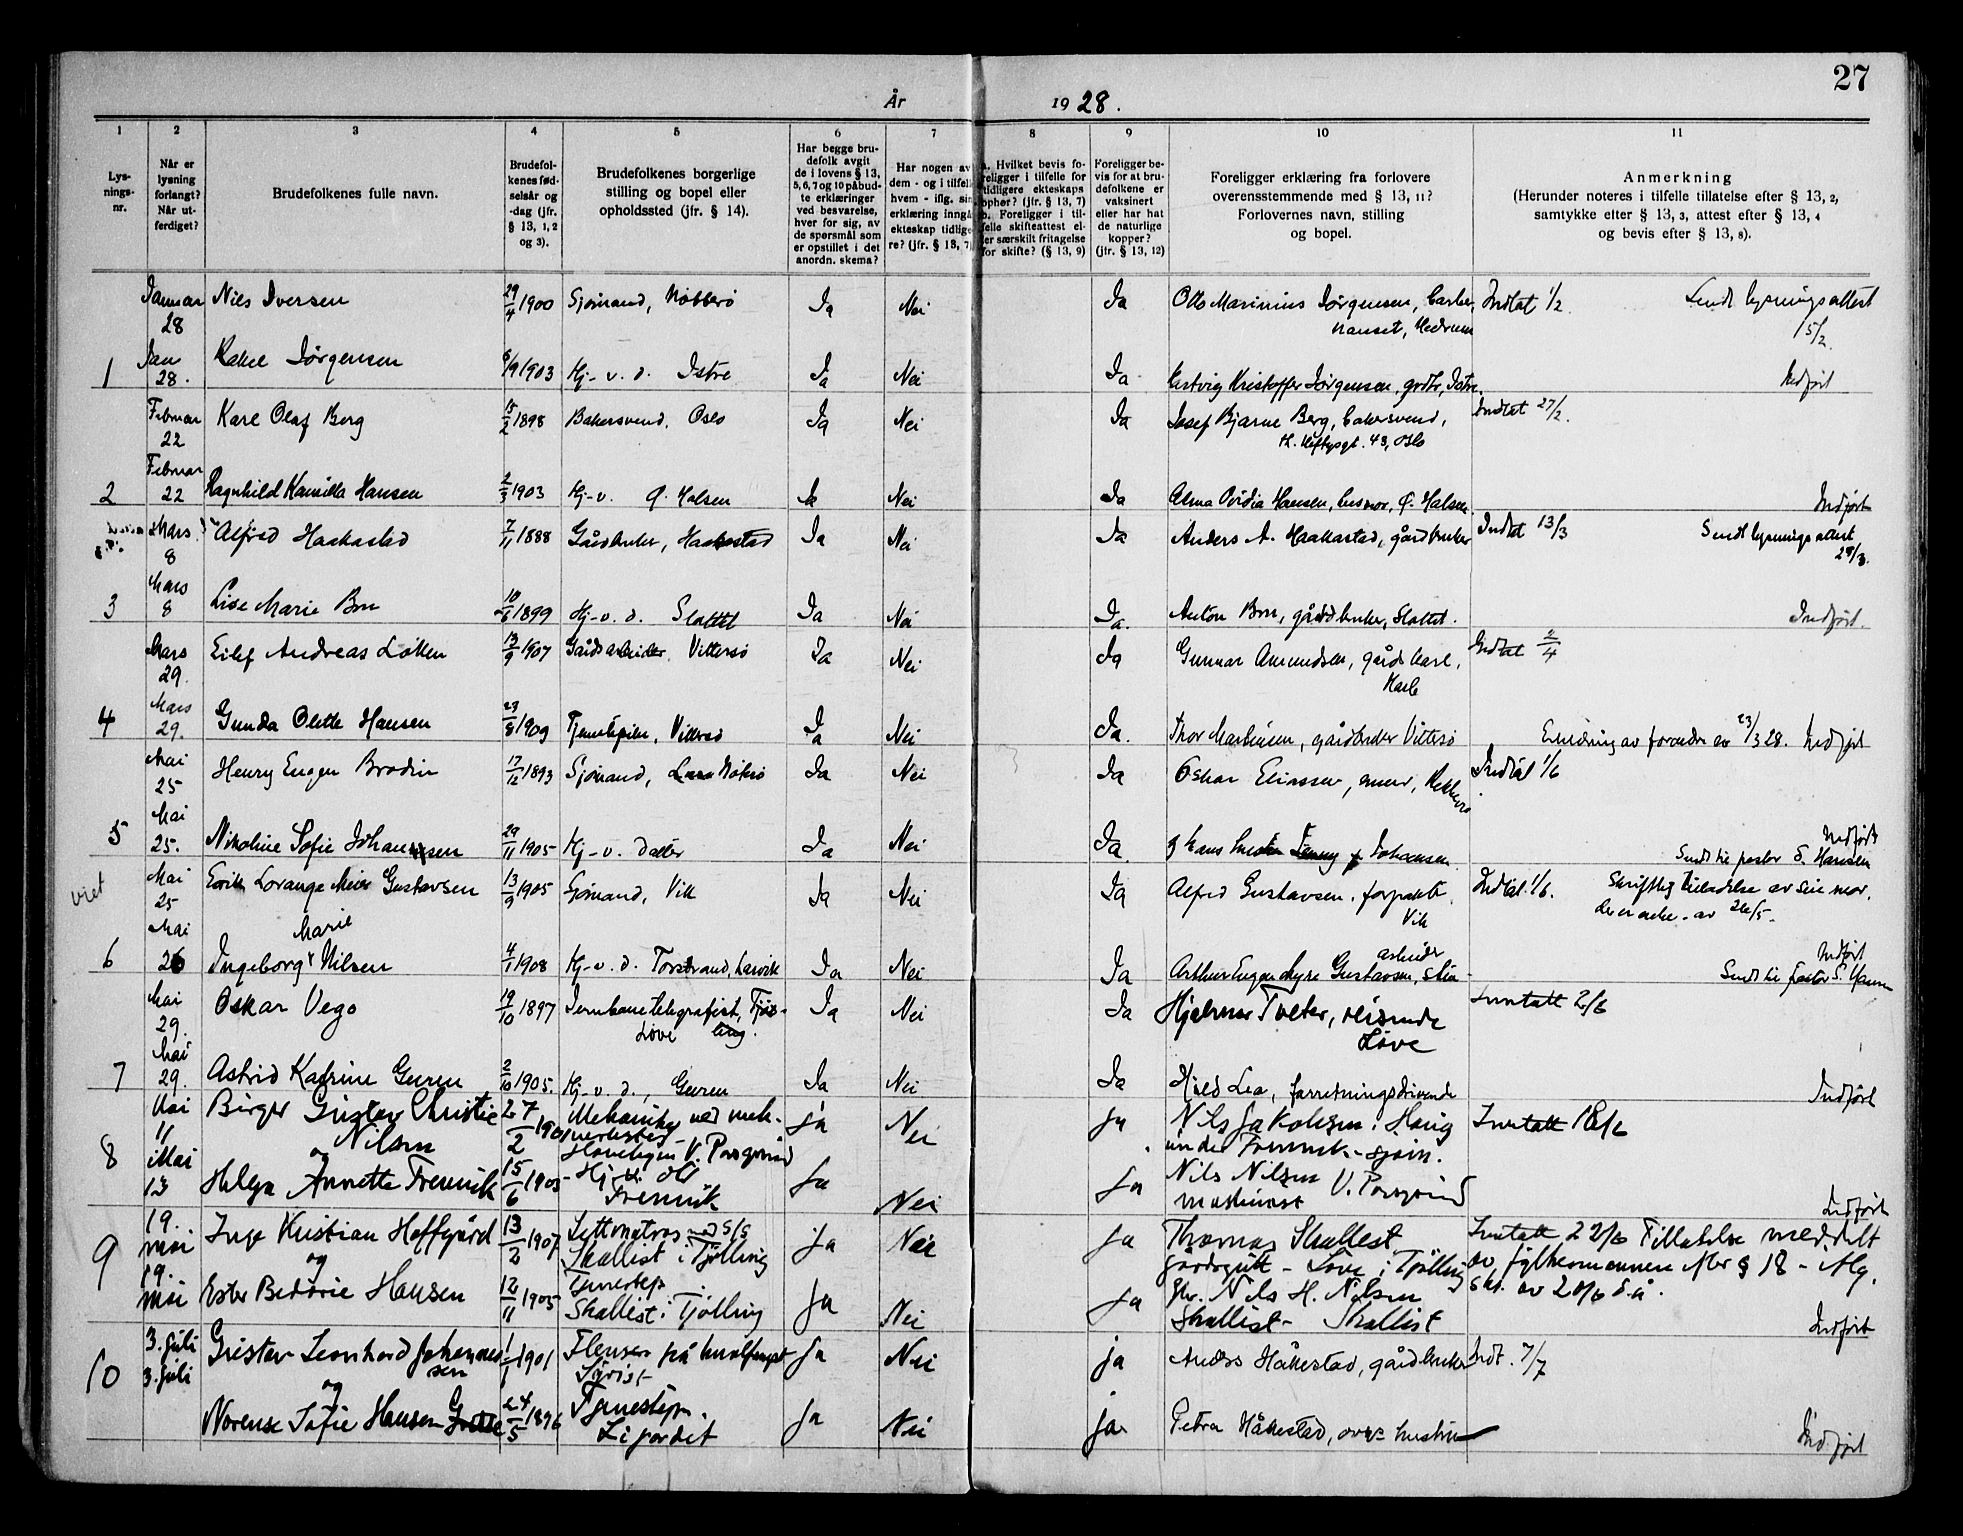 27
År 1928.
1 2 3 4 5 6 7 8 9 10 11
Lysningsnr.
Når er lysning forlangt? Når utferdiget?
Brudefolkenes fulle navn.
Brudefolkenes fødselsår og -dag (jfr. § 13, 1, 2 og 3).
Brudefolkenes borgerlige stilling og bopel eller opholdssted (jfr. § 14).
Har begge brudefolk avgit de i lovens § 13, 5, 6, 7 og 10 påbudte erklæringer ved besvarelse, hver for sig, av de spørsmål som er opstillet i det anordn. skema?
Har nogen av dem - og i tilfelle hvem - iflg. sin erklæring inngått ekteskap tidligere? (jfr. § 13, 7)
a. Hvilket bevis foreligger i tilfelle for tidligere ekteskaps ophør? (jfr. § 13, 7) b. Foreligger i tilfelle skifteattest eller særskilt fritagelse for skifte? (§ 13, 9)
Foreligger bevis for at brudefolkene er vaksinert eller har hat de naturlige kopper? (jfr. § 13, 12)
Foreligger erklæring fra forlovere overensstemmende med § 13, 11? Forlovernes navn, stilling og bopel.
Anmerkning (Herunder noteres i tilfelle tillatelse efter § 13, 2, samtykke efter § 13, 3, attest efter § 13, 4 og bevis efter § 13, 8).
Januar 28 Nils Iversen 29/4 1900 Sjømand, Nøtterø Ja Nei Ja Otto Marinius Jørgensen, Hedrum Indtat 1/2. Sendt lysningsattest 15/2.
1 Jan 28. Rakel Jørgensen 6/9 1903 Hj-v. d. Istre Ja Nei Ja Hartvig Kristoffer Jørgensen, grdbr, Istre. Indført
Februar 22 Karl Olaf Berg 15/2 1898 Bakersvend, Oslo Ja Nei Ja Josef Bjarne Berg, bakersvend, Th. Heftysgt. 43, Oslo Indtat 27/2.
2 Februar 22 Ragnhild Kamilla Hansen 2/3 1903 Hj-v. Ø. Halsen Ja Nei Ja Alma Ovidia Hansen, husmor, Ø. Halsen Indført
Mars 8 Alfred Haakestad 7/11 1888 Gårdbruker, Haakestad Ja Nei Ja Anders A. Haakestad, gårdbruker Indtat 13/3 Sendt lysningsattest 28/3.
3 Mars 8 Lise Marie Bru 1899 Hj-v. d. Slottet Ja Nei Ja. Anton Bru, gårdbruker, Slottet. Indført.
Mars 29. Eilef Andreas Løken 13/9 1907 Gårdsarbeider, Vittersø Ja Nei Ja Gunnar Amundsen, gårdskarl, Indtat 2/4
4 Mars 29. Gunda Olette Hansen 23/8 1909 Tjenestepike, Vittersø Ja Nei Ja. Thor Martinsen, gårdbruker Vittersø av 23/3 28. Indført
Mai 25 Henry Eugen Brodin 17/12 1893 Sjømand, Ja Nei Ja Oskar Eliassen, murer, Indtat 1/6
5 Mai 25. Nikoline Sofie Johannsen 29/11 1905 Hj-v. Ja Nei Ja Johansen Indført
Sendt til pastor S. Hansen
viet Mai 25 Lorange Meier Gustavsen 13/9 1905 Sjømand, Vik Ja Nei Ja Alfred Gustavsen, forpakter Vik Indtat 1/6. Skriftlig tilladelse av sin mor, der er enke. av 26/5.
6 Mai 26 Ingeborg Marie Nilsen 4/1 1908 Hj-v. d. Torstrand, Larvik Ja Nei Ja Arthur Eugen Myre Gustavsen, arbeider Indført
Sendt til pastor S. Hansen
Mai 29. Oskar Vego 19/10 1897 Jernbanetelegrafist, Tjøl-ling. Løve Ja Nei Ja Hjalmar Tveter, reisende Løve Inntatt 2/6
7 Mai 29. Astrid Katrine Guren 2/10 1905. Hj-v. d., Guren Ja Nei Ja Lea, forretningsdrivende Indført
8 Mai 11 Birger Gustav Christie Nilsen 27/2 1901 Mekaniker ved mek. verksted - V. Porsgrund ja Nei ja Nils Jakobsen. Haug under Fremnik-sjøen. Inntatt 18/6
og
Mai 13 Helga Annette Fremnik 15/6 1905 Hj-v. Fremnik ja Nei ja Nils Nilsen V. Porsgrund maskinist Indført
9 19. mai Inge Kristian Hoffgård 13/2 1907 Lettmatros S/S Skallist i Tjølling ja Nei ja Thomas Skallist gårdsgutt - Løve i Tjølling Inntatt 22/6 Tillatelse meddelt av fylkesmannen efter § 18 - iflg. skr. av 20/6 d.å.
og
19. mai Ester Bedorie Hansen 12/11 1905 Tjenestep. Skallist i Tjølling ja Nei ja Nils H. Nilsen Skallist - Skallist Indført
10 3. juli Gustav Leonhard Johannessen 1/1 1901 Flenser på hvalfangst ja Nei ja Anders Håkestad, gårdbruker Indt. 7/7
3. juli og
Norense Sofie Hansen 24/5 1896 Tjenestep. Lijordet ja Nei ja Petra Håkestad, hustru Indført